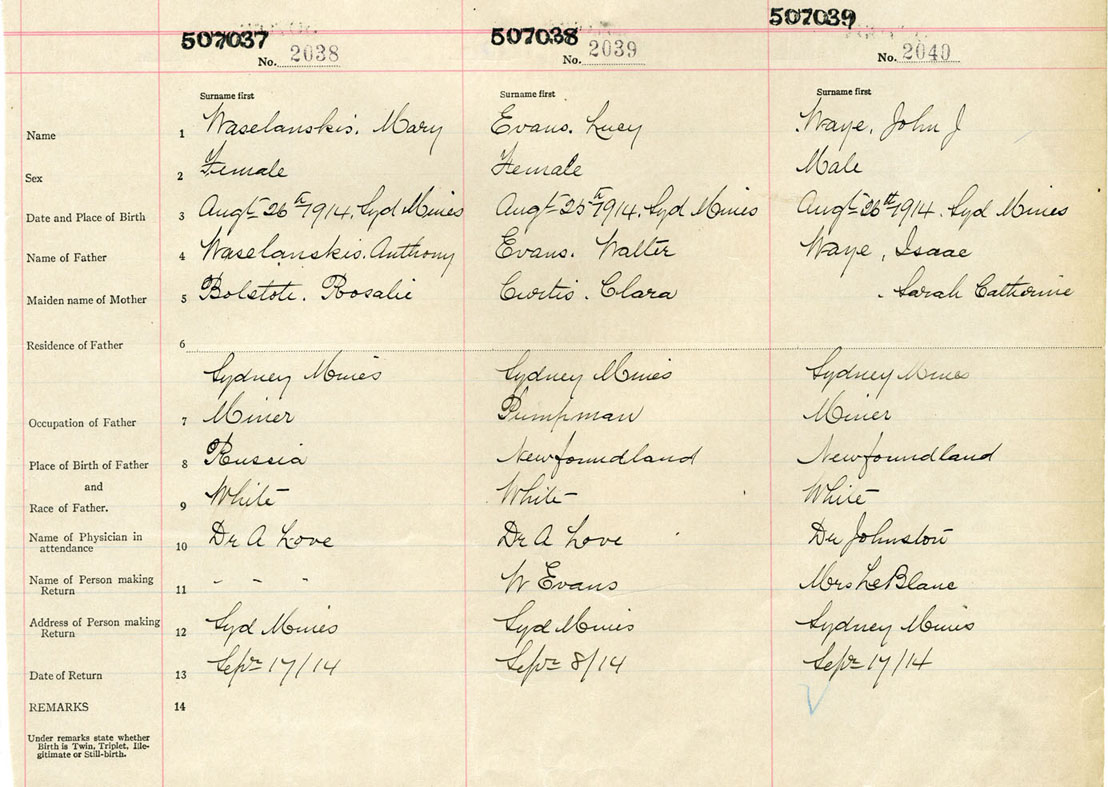 507037 507038 507039
No. 2038 No. 2039 No. 2040
Surname first Surname first Surname first
Name 1 Waselanskis, Mary Evans, Lucy Waye, John J
Sex 2 Female Female Male
Date and Place of Birth 3 Augt 26th 1914, Syd Mines Augt 25th 1914, Syd Mines Augt 26th 1914, Syd Mines
Name of Father 4 Waselanskis, Anthony Evans, Walter Waye, Isaac
Maiden name of Mother 5 Rosalie Curtis, Clara Sarah Catherine
Residence of Father 6
Sydney Mines Sydney Mines Sydney Mines
Occupation of Father 7 Miner Pumpman Miner
Place of Birth of Father 8 Russia Newfoundland Newfoundland
and
Race of Father. 9 White White White
Name of Physician in
attendance 10 Dr A Love Dr A Love Dr Johnston
Name of Person making
Return 11 - - - W Evans Mrs LeBlanc
Address of Person making
Return 12 Syd Mines Syd Mines Sydney Mines
Date of Return 13 Sepr 17/14 Sepr 8/14 Sepr 17/14
REMARKS 14
Under remarks state whether
Birth is Twin, Triplet, Ille-
gitimate or Still-birth.